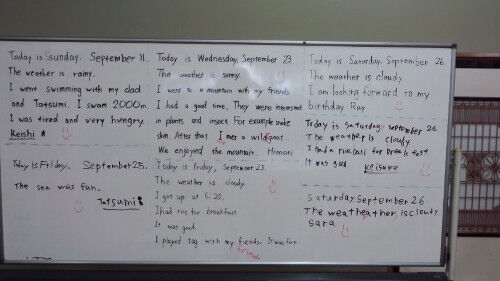 Today is Sunday. September 11.
The weather is rainy.
I went swimming with my dad
and Tatsumi. I swam 2000m.
I was tired and very hungry.
Keishi
Today is Friday. September 25.
The sea was fun.
Tatsumi
Today is Wednesday, September 23.
The weather is sunny.
I went to a mountain with my friends
I had a good time. They were interested
in plants and insect. For example snake
skin. After that I met a wild goat.
We enjoyed the mountain Himari
Today is Friday, September 25.
The weather is cloudy.
I got up at 6:20.
I had rice for breakfast.
It was good.
I played tag with my friends. It was fun.
Today is Saturday, September 26
The weather is cloudy
I am looking forward to my
birthday Ray
Today is Saturday. September 26
The weather is cloudy
I had a rice ball for breakfast.
It was good. Keisuke
Saturday September 26
The weather is clouty
Sara